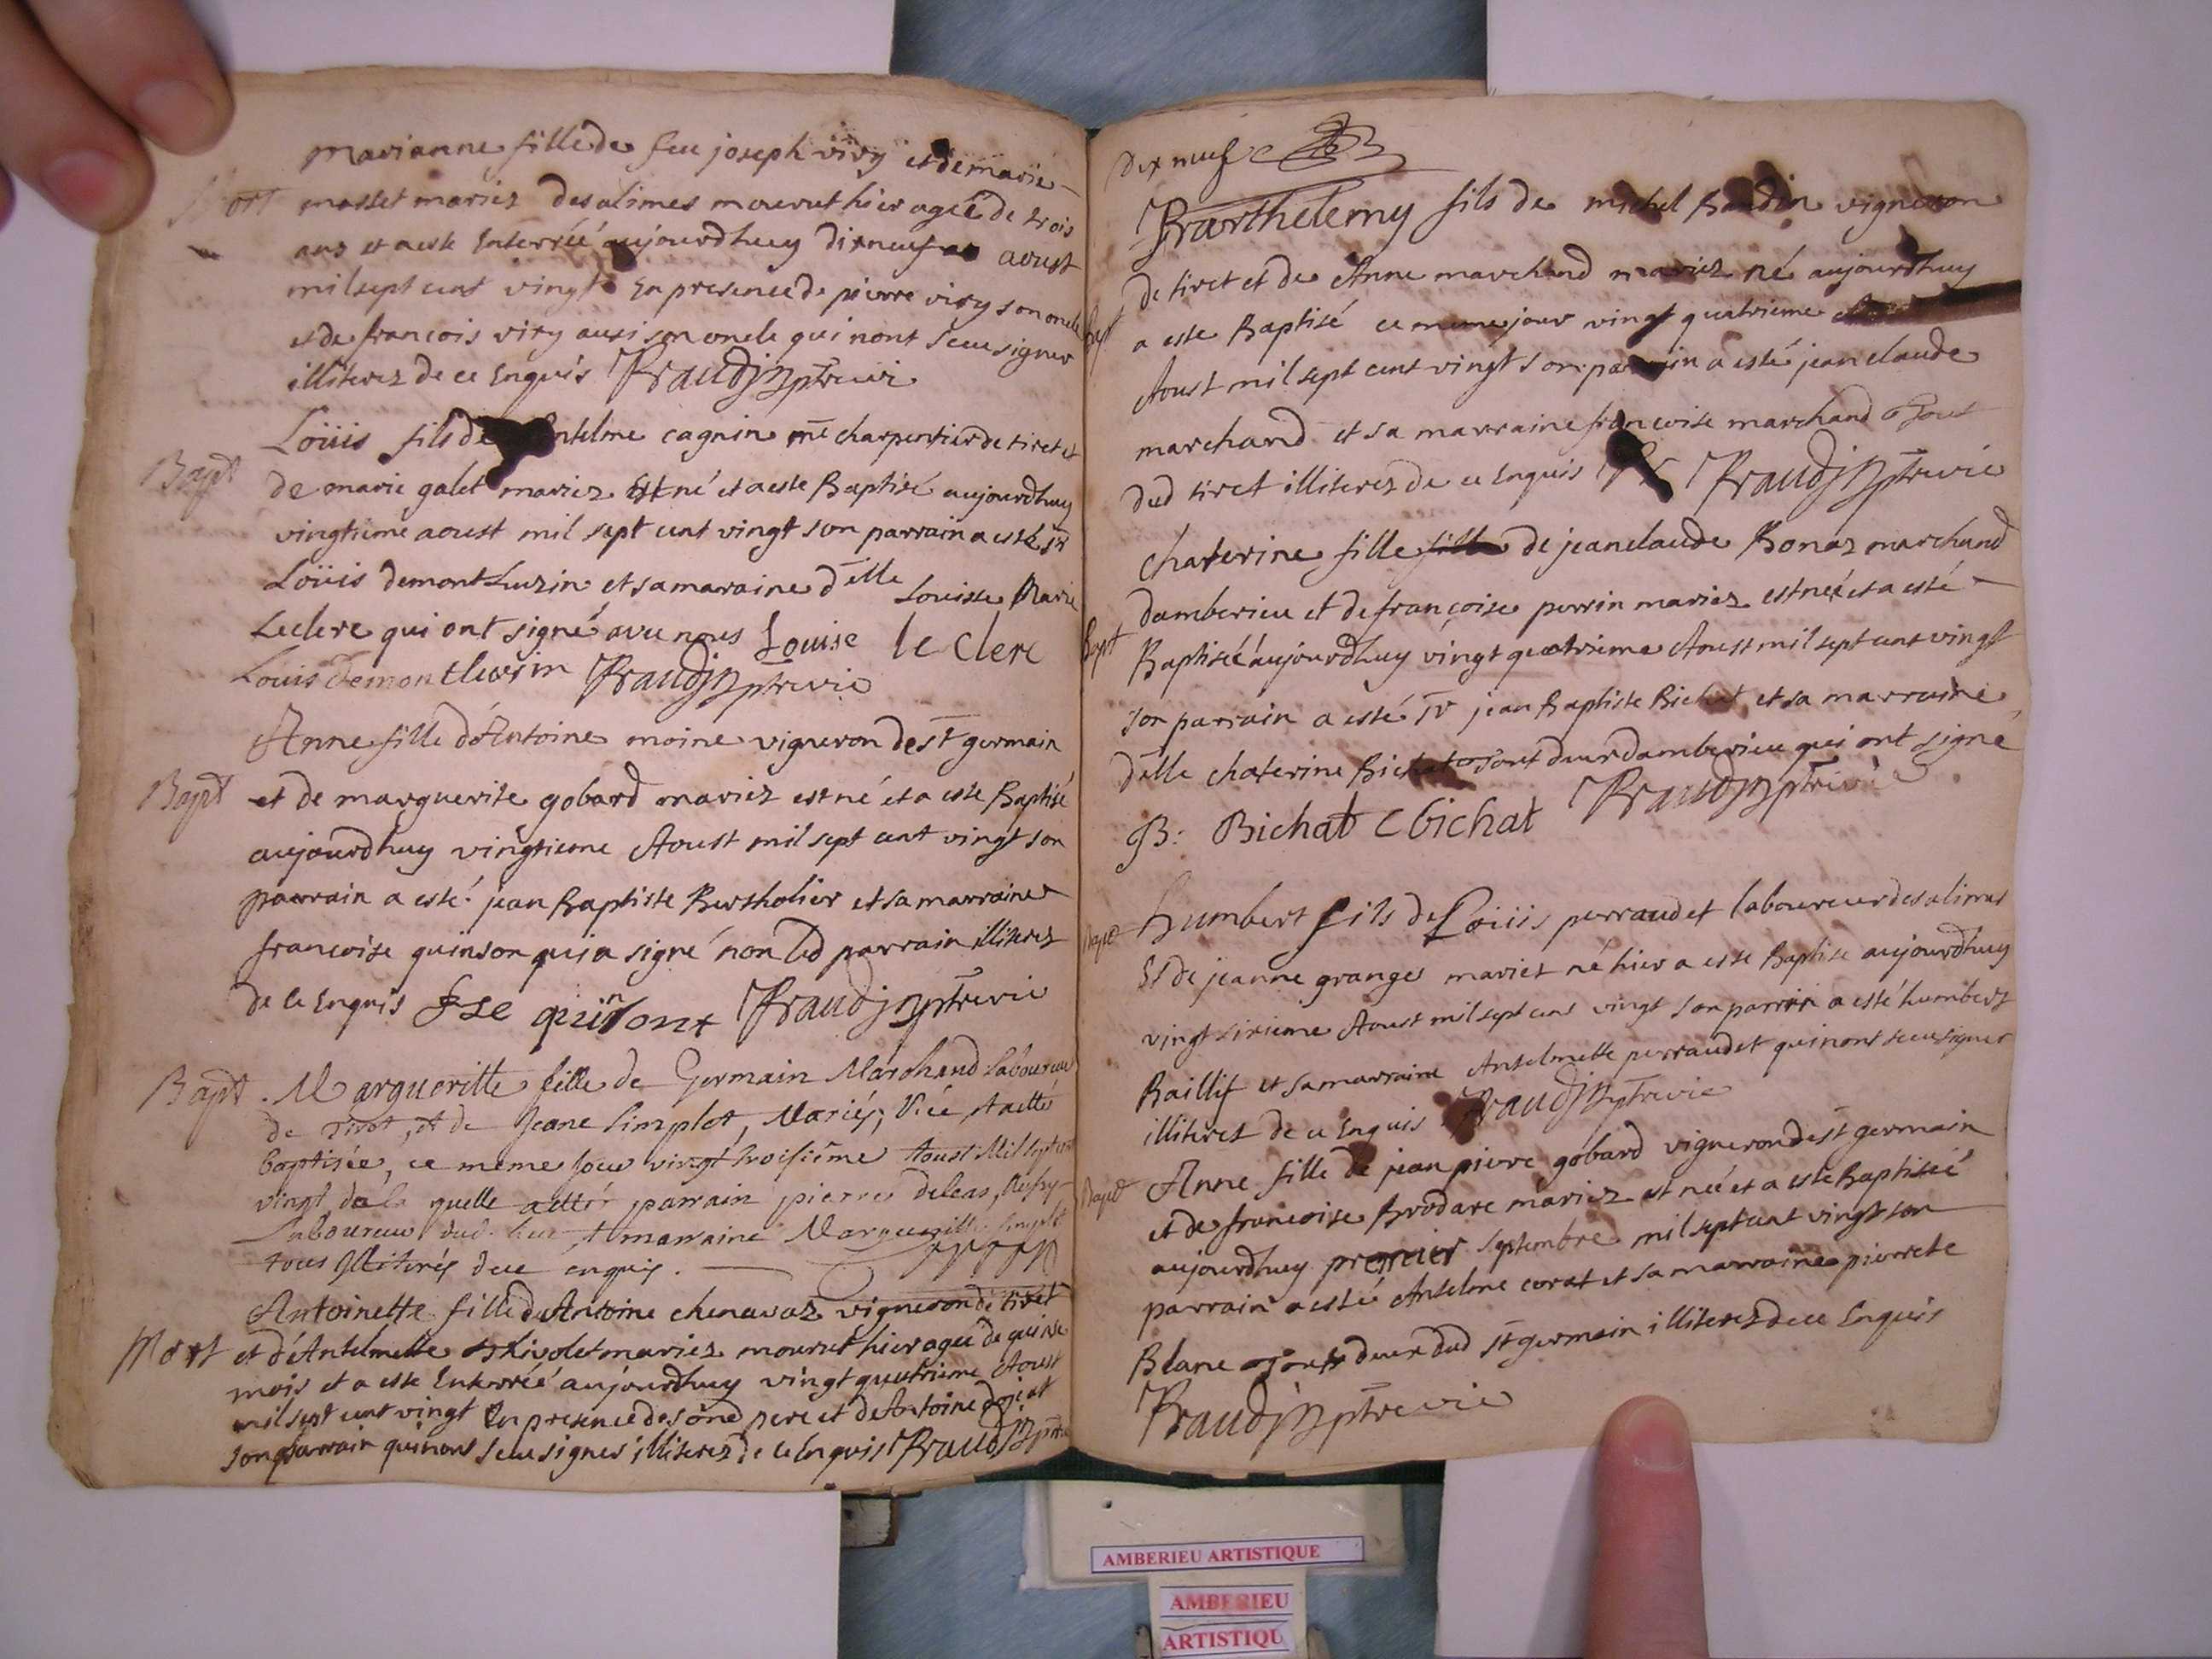 Marianne fille de feu joseph viry et de marie
Mort
masset mariez des alimes mourut hier agéé de trois
ans et a esté Enterréé aujourdhuy dixneuf aoust
mil sept cent vingt En presence de pierre viry son oncle
et de francois viry aussi son oncle qui nont sceu signer
illiterez de ce Enquis Braudj ptre vic
Loüis fils de Antelme cagnin me charpentier de tiret et
Bapt
de marie galet mariez Est né et a este Baptisé aujourdhuy
vingtieme aoust mil sept cent vingt son parrain a esté sr
Loüis demontluzin et sa maraine delle Louisse Marie
Leclerc qui ont signé avec nous Louise le Clerc
Louis demontluzin Braudj ptre vic
Anne fille d'Antoine moine vigneron de st germain
Bapt
et de marguerite gobard mariez est né et a este Baptisé
aujourdhuy vingtieme Aoust mil sept cent vingt son
parrain a esté jean Baptiste Bertholier et sa marraine
francoise quinson qui a signé non led parrain illiterez
de ce Enquis fse quinsont Braudj ptre vic
Bapt
Margueritte fille de Germain Marchand laboureur
de Tiret, et de Jeane Simplet, Mariés, Née, et a etté
baptisée, ce meme jour vingt troisiéme Aoust Mil sept cent
vingt, de la quelle a etté parrain pierre deleas,
laboureur dud. lieu et marraine Marguerille Simplet
tous illiterés de ce enquis.
Antoinette fille d'Antoine chenavaz vigneron de tiret
Mort
et d'Antelmette mariez mourut hier ageé de quinse
mois et a esté Enterréé aujourdhuy vingt quatrieme Aoust
mil sept cent vingt En presence de sond pere et d'Antoine
son parrain qui nont sceu signer illiterez de ce Enquis Braudj ptre
Dix neuf
Barthelemy fils de michel Baudin vigneron
de tiret et de Anne marchand mariez né aujourdhuy
Bapt
a este Baptisé ce meme jour vingt quatrieme
Aoust mil sept cent vingt son parrain a esté jean claude
marchand et sa marraine francoise marchand
dud tiret illiterez de ce Enquis Braudj ptre vic
Chaterine fille de jean claude Bonaz marchand
damberieu et de françoise perrin mariez est néé et a esté
Bapt
Baptiséé aujourdhuy vingt quatrieme Aoust mil sept cent vingt
son parrain a esté sr jean Baptiste Bichat et sa marraine
delle chaterine Bichat tout deux damberieu qui ont signé
B: Bichat C bichat Braudj ptre vic
Bapt
humbert fils de Loüis perraudet laboureur des alimes
Et de jeanne granger mariez né hier a este Baptise aujourdhuy
vingt sixieme Aoust mil sept cent vingt son parrin a esté humbert
Baillif et sa marraine Antelmette perraudet qui nont sceu signer
illiterez de ce Enquis Braudj ptre vic
Bapt
Anne fille de jean pierre gobard vigneron de st germain
et de francoise Brodare mariez est neé et a este Baptiséé
aujourdhuy premier septembre mil sept cent vingt son
parrain a estéé Antelme corat et sa marraine pierrete
Blanc tout deux dud st germain illiterez de ce Enquis
Braudj ptre vic
AMBERIEU ARTISTIQUE
AMBERIEU
ARTISTIQU